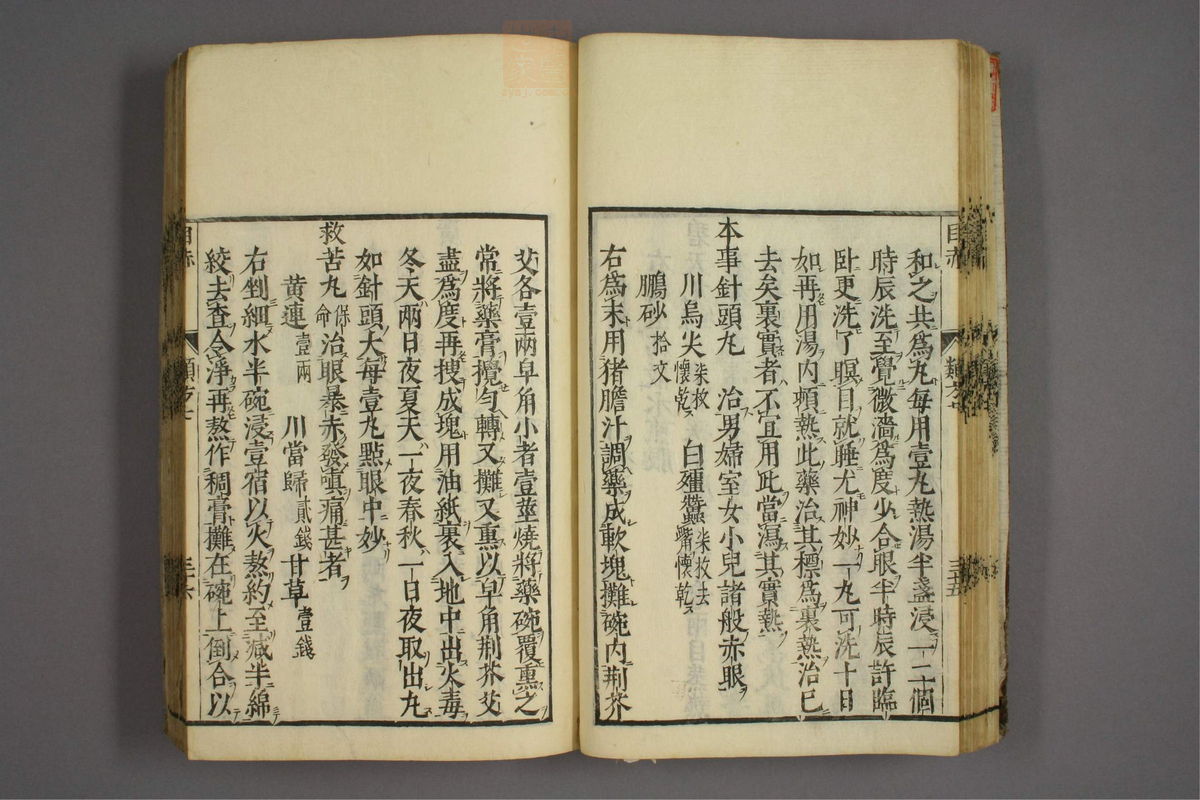 和之共爲丸每用壹丸熱湯半盞浸一二十個
時辰洗至覺微濇爲度少合眼半時辰許臨
臥更洗了瞑目就睡尤神妙一丸可洗十日
如再用湯内頓熱此藥治其標爲裏熱治已
去矣裏實者不宜用此當瀉其實熱
本事針頭丸 治男婦室女小兒諸般赤眼
川烏尖 柒枚懷乾 白殭蠶 柒枚去嘴懷乾
鵬砂 拾文
右爲末用猪膽汁調藥成軟塊攤碗内荆芥
艾各壹兩皁角小者壹莖燒將藥碗覆熏之
常將藥膏攪勻轉又攤又熏以皁角荆芥艾
盡爲度再搜成塊用油紙裹入地中出火毒
冬天兩日夜夏天一夜春秋一日夜取出丸
如針頭大每壹丸㸃眼中妙
救苦丸 保命 治眼暴赤發嗔痛甚者
黄連 壹兩 川當歸 貳錢 甘草 壹錢
右剉細水半碗浸壹宿以火熬約至减半綿
絞去查令淨再熬作稠膏攤在碗上倒合以